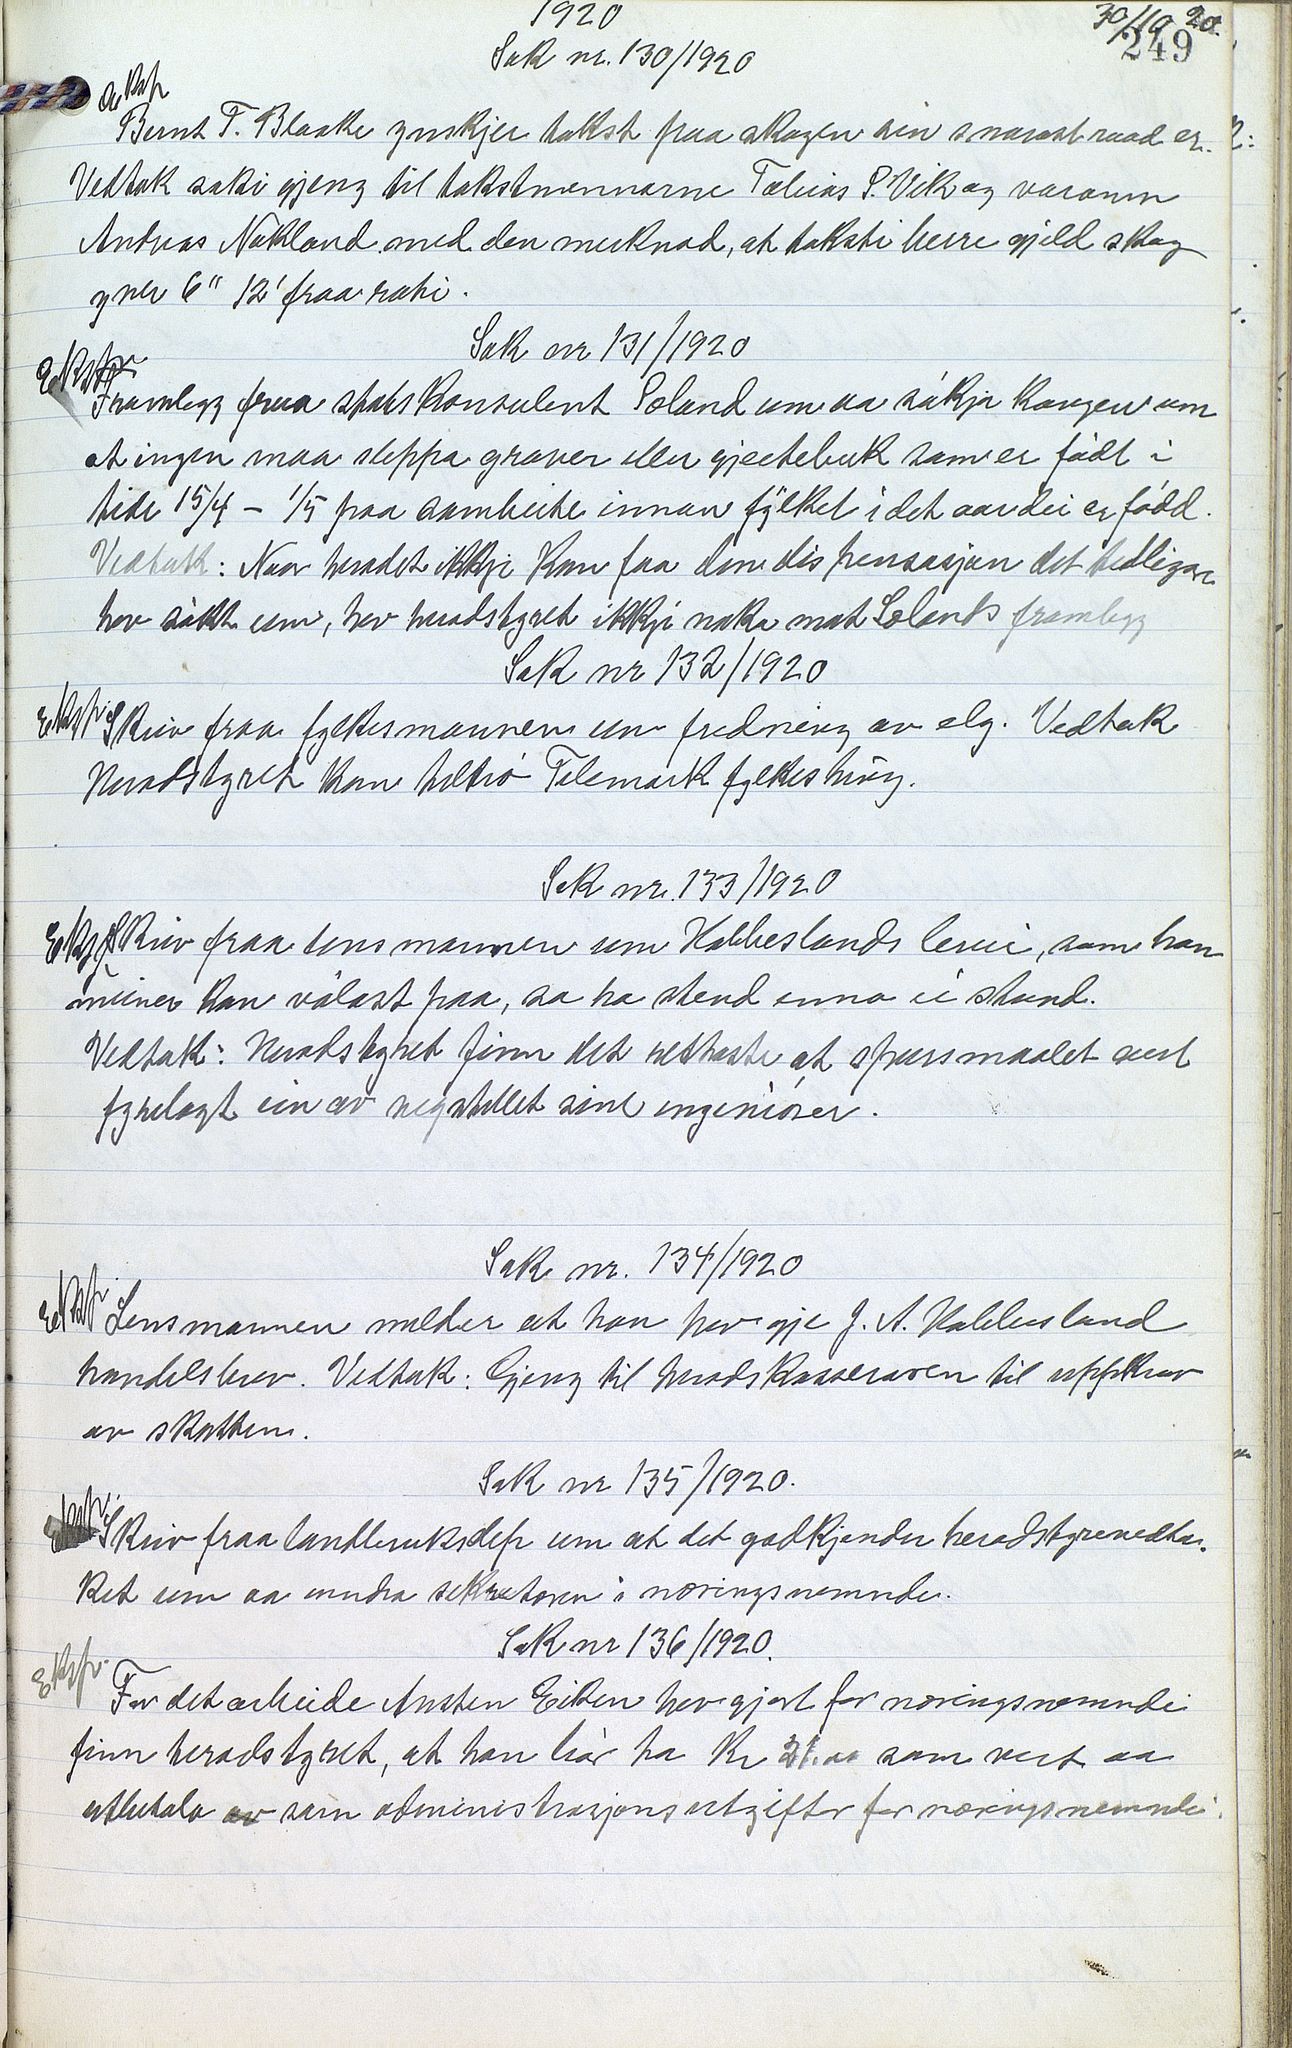 1920
30/10 20.
249
Sak nr. 130/1920
Eksp
Bernt T. Blaake ynskjer takst paa skogen sin snarast raad er.
Vedtak saki gjeng til takstmennarne Tobias S. Vik og varamn
Andreas Nakland med den merknad, at taksti berre gjeld skog
yver 6" 12' fraa roti.
Sak nr 131/1920
Ekspr
Framlegg fraa statskonsulent Soland um aa søkja Kongen um
at ingen maa sleppa graver eller gjeitebuk som er født i
tidi 15/4 – 1/5 paa sambeite innan fylket i det aar dei er fødd.
Vedtak: Naar heradet ikkje kan faa den dispensasjon det tidligare
hev søkt um, hev heradstyret ikkje noko mot Solands framlegg
Sak nr 132/1920
Ekspr. Skriv fraa fylkesmannen um fredning av elg. Vedtak
Heradstyret kan tiltrø Telemark fylkesting.
Sak nr. 133/1920
Eksp Skriv fraa lensmannen um Habbeslands brui, som han
meiner kan vølast paa, so ho stend enno ei stund.
Vedtak: Heradstyret finn det rettaste at spursmaalet vert
fyrelagt ein av vegstellet sine ingeniører.
Sak nr. 134/1920
Ekspr. Lensmannen melder at han hev gje J. A. Habbesland
handelsbrev. Vedtak: Gjeng til heradskasseraren til uppkrav
av skatten.
Sak nr 135/1920.
Ekspr. Skriv fraa landbruksdep um at det godkjender heradstyrevedta-
ket um aa endra sekretæren i næringsnemndi.
Sak nr 136/1920.
Ekspr.
For det arbeide Austen Eiken hev gjort for næringsnemndi
finn heradstyret, at han bør ha Kr 21.00 som vert aa
utbetala av som administrasjonsutgifter for næringsnemndi.